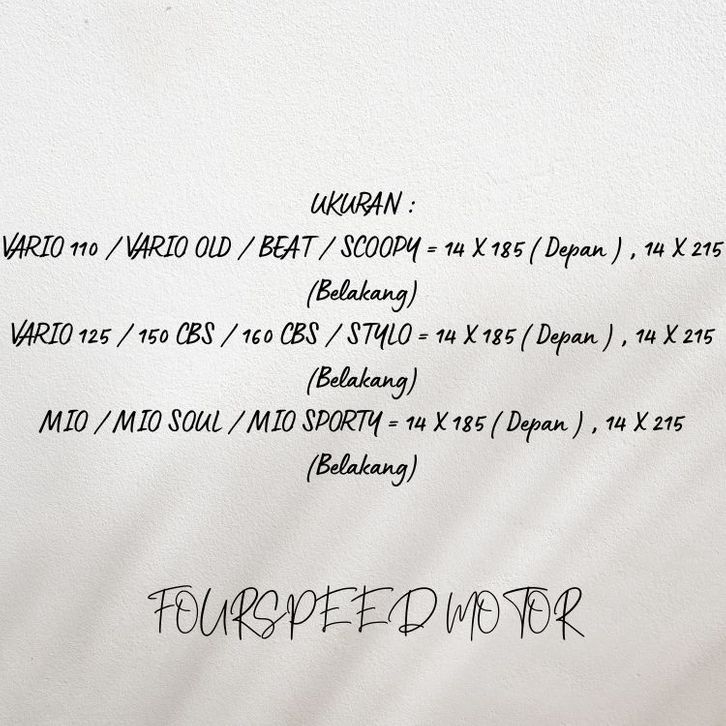 UKURAN :
VARIO 110 / VARIO OLD / BEAT / SCOOPY = 14 X 185 ( Depan ) , 14 X 215
(Belakang)
VARIO 125 / 150 CBS / 160 CBS / STYLO = 14 X 185 ( Depan ) , 14 X 215
(Belakang)
MIO / MIO SOUL / MIO SPORTY = 14 X 185 ( Depan ) , 14 X 215
(Belakang)
FOURSPEED MOTOR